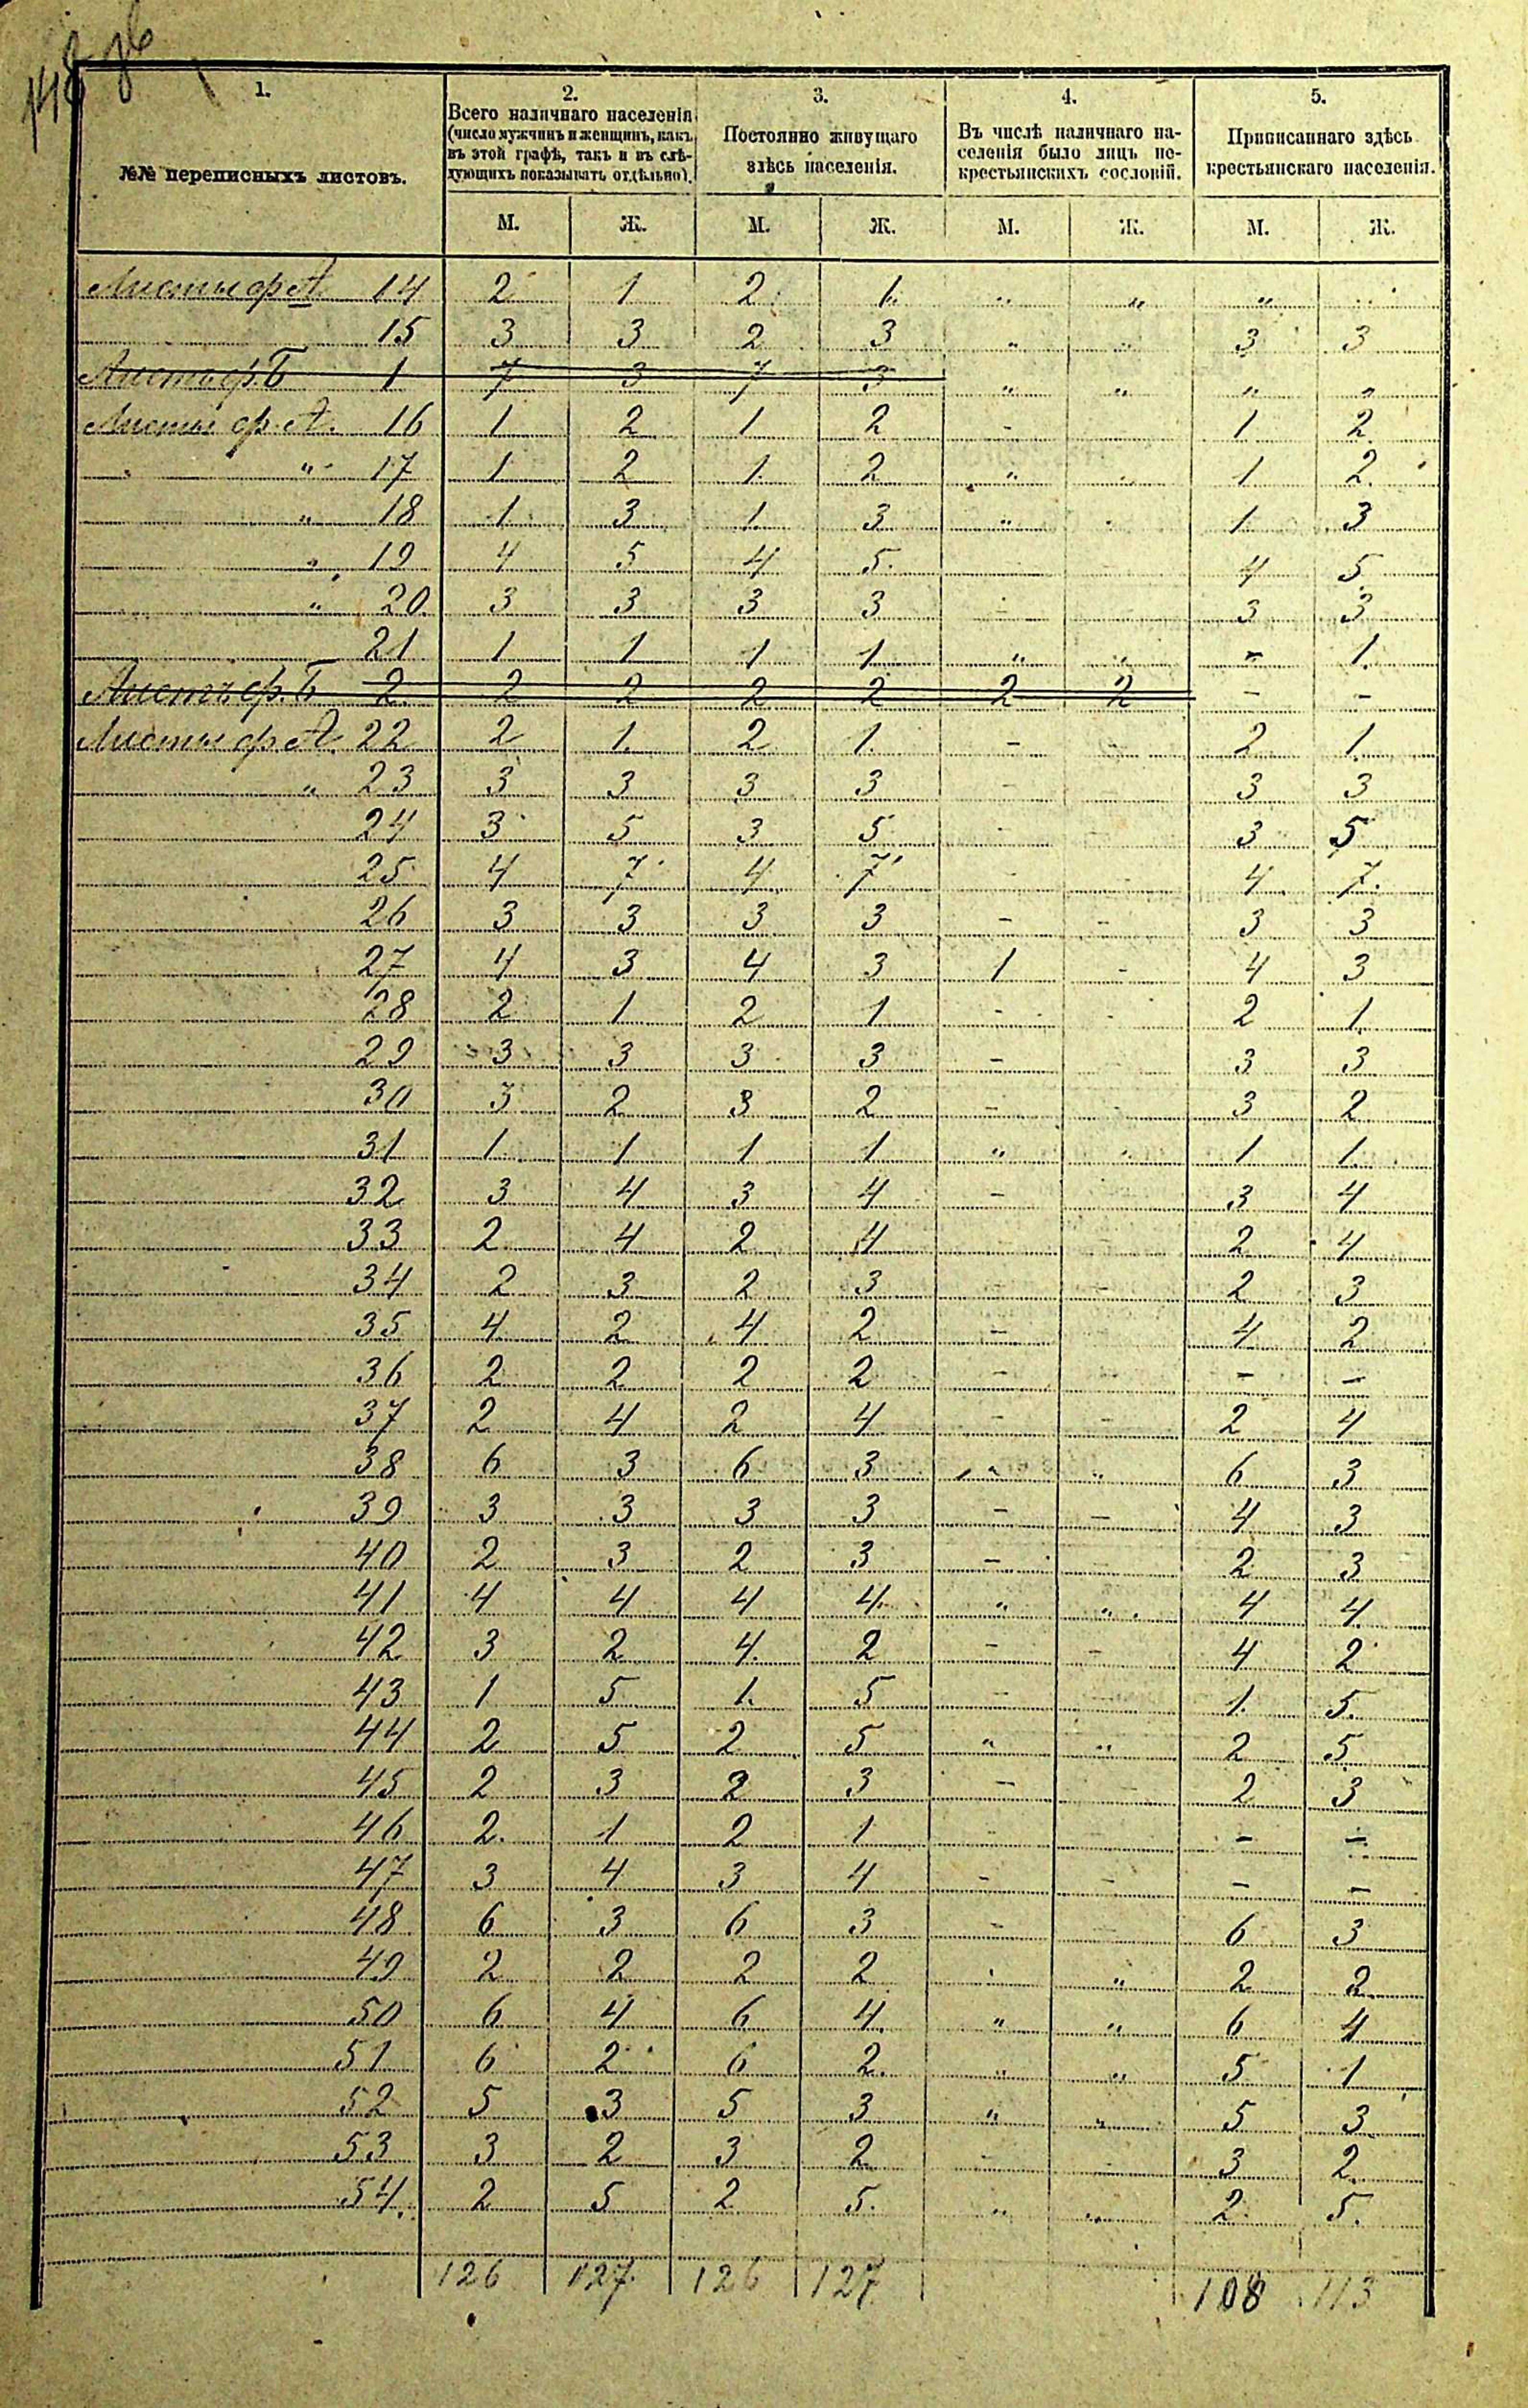 148
1.
№№ переписныхъ листовъ.
2.
Всего наличнаго населенія
(число мужчинъ и женщинъ, какъ
въ этой графѣ, такъ и въ слѣ-
дующихъ показывать отдѣльно).
3.
Постоянно живущаго
здѣсь населенія.
4.
Въ числѣ наличнаго на-
селенія было лицъ не-
крестьянскихъ сословій.
5.
Приписаннаго здѣсь
крестьянскаго населенія.
М. Ж. М. Ж. М. Ж. М. Ж.
Листы ф. А. 14 2 1 2 1 " " "
15 3 3 2 3 " " 3 3
Листъ ф. Б 1 7 3 7 3 " " " "
Листы ф. А. 16 1 2 1 2 - 1 2
" 17 1 2 1 2 " 1 2
" 18 1 3 1 3 " 1 3
" 19 4 5 4 5 4 5
" 20 3 3 3 3 - 3 3
21 1 1 1 1 " " - 1
Листъ ф. Б 2 2 2 2 2 2 2 - -
Листы ф. А. 22 2 1 2 1 - - 2 1
" 23 3 3 3 3 - 3 3
24 3 5 3 5 - - 3 5
25 4 7 4 7 - - 4 7
26 3 3 3 3 - - 3 3
27 4 3 4 3 1 - 4 3
28 2 1 2 1 - - 2 1
29 3 3 3 3 - 3 3
30 3 2 3 2 - - 3 2
31 1 1 1 1 " " 1 1
32 3 4 3 4 - 3 4
33 2 4 2 4 - - 2 4
34 2 3 2 3 - - 2 3
35 4 2 4 2 - 4 2
36 2 2 2 2 - - - -
37 2 4 2 4 - - 2 4
38 6 3 6 3 " " 6 3
39 3 3 3 3 - - 4 3
40 2 3 2 3 - 2 3
41 4 4 4 4 " " 4 4
42 3 2 4 2 - - 4 2
43 1 5 1 5 - - 1 5
44 2 5 2 5 " " 2 5
45 2 3 2 3 - - 2 3
46 2 1 2 1 - - -
47 3 4 3 4 - - - -
48 6 3 6 3 - - 6 3
49 2 2 2 2 " 2 2
50 6 4 6 4 " " 6 4
51 6 2 6 2 " " 5 1
52 5 3 5 3 " " 5 3
53 3 2 3 2 - - 3 2
54 2 5 2 5 " " 2 5
126 127 126 127 108 113